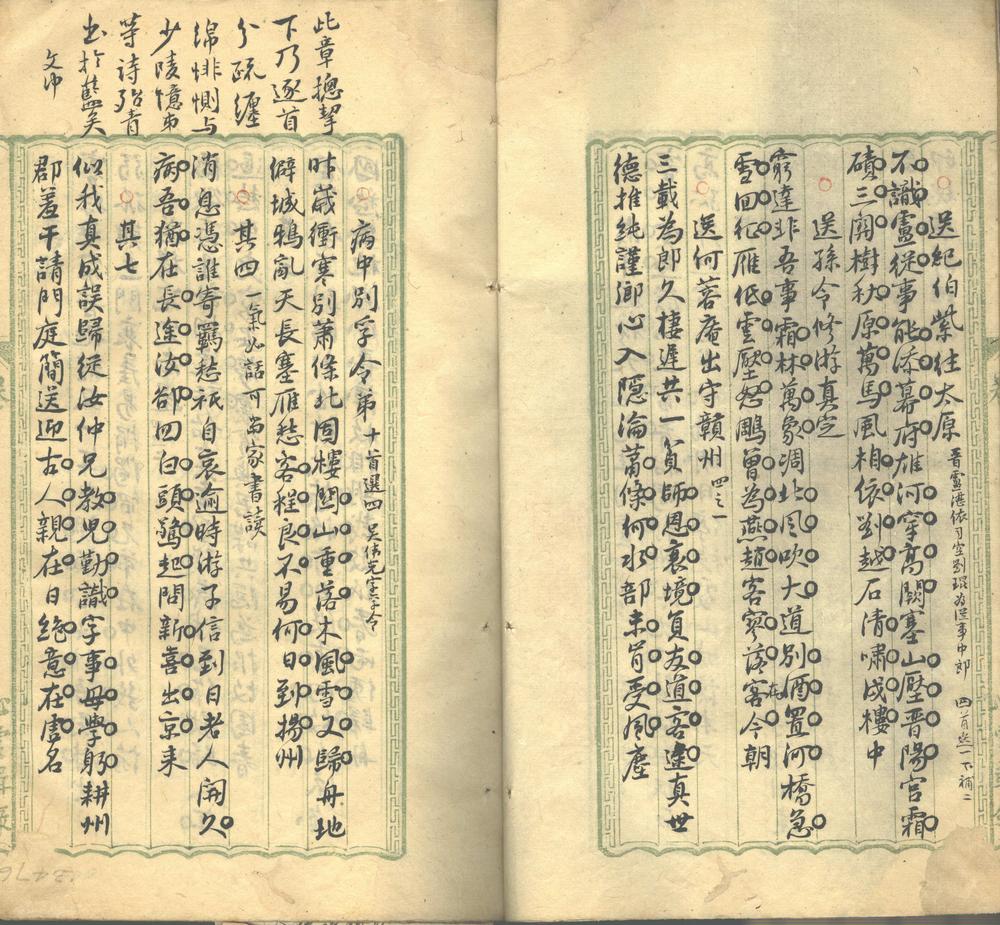 送紀伯紫往太原
晉盧諶依司空劉琨為從事中郎 四首選一下補二
不識盧從事能添幕府雄河穿高闕塞山壓晉陽宮霜
磧三關樹秋原萬馬風相依劉越石清嘯戍樓中
送孫令修游真定
窮達非吾事霜林萬象凋北風吹大道別酒置河橋急
雪回征雁低雲壓怒鵰曾為燕趙客寥落在今朝
客
送何蓉庵出守贛州 四之一
三載為郎久棲遲共一貧師恩衰境負友道客途真世
德推純謹鄉心入隱淪蕭條何水部未肯受風塵
此章摠挈
下乃逐首
分疏纏
綿悱惻与
少陵憶弟
等詩殆青
出於藍矣
文冲
病中別孚令弟 十首選四 吳偉光字孚令
昨歲衝寒別蕭條北固樓關山重落木風雪又歸舟地
僻城鴉亂天長塞雁愁客程良不易何日到揚州
其四 一氣如話可當家書讀
消息憑誰寄羈愁祇自哀逾時游子信到日老人開久
病吾猶在長途汝卻回白頭驚起問新喜出京來
其七
似我真成誤歸從汝仲兄教兒勤識字事母學躬耕州
郡羞干請門庭簡送迎古人親在日絕意在虛名